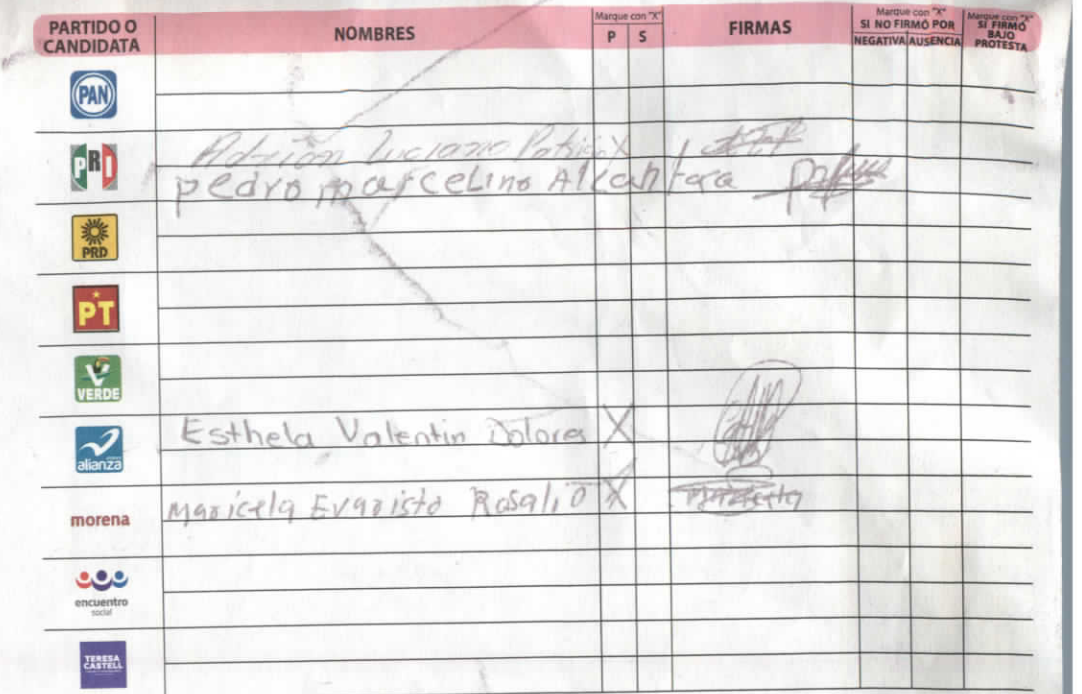 PARTIDO O CANDIDATA NOMBRES Marque con "X" P S FIRMAS Marque con "X" SI NO FIRMÓ POR NEGATIVA AUSENCIA Marque con "X" SI FIRMÓ BAJO PROTESTA
PAN
PRI Adrián Luciano X
pedro marcelino Alcantara
PRD
PT
VERDE
alianza Esthela Valentin Dolores X
morena Maricela Evaristo Rosalio X Maricela
encuentro social
TERESA CASTELL